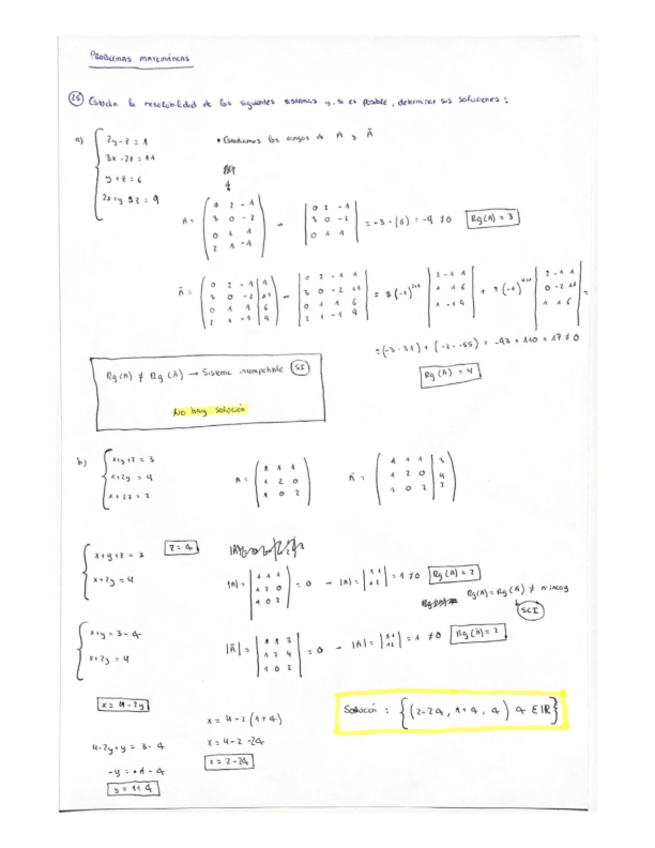 PROBLEMAS MATEMÁTICAS
25 Estudia la resolubilidad de los siguientes sistemas y, si es posible, determinar sus soluciones:
a) 2y-z=1
3x-2z=11
y+z=6
2x+y z=9
• Estudiamos los rangos de A y Ā
A= ( 0 2 -1
3 0 -2
0 1 1
2 1 -1 )
| 0 2 -1
3 0 -2
0 1 1 | = -3-(6) = -9 ≠0 Rg(A)=3
Ā= ( 0 2 -1 | 1
3 0 -2 | 11
0 1 1 | 6
2 1 -1 | 9 )
| 0 2 -1 1
3 0 -2 11
0 1 1 6
2 1 -1 9 |
| 2 -1 1
1 1 6
1 -1 9 |
| 2 -1 1
0 -2 11
1 1 6 | =
= -93 + 110 = 17 ≠ 0
Rg(A)=4
Rg(A) ≠ Rg(A) → Sistema incompatible SI
No hay solución
b) x+y+z=3
x+2y=4
x+2z=2
A= ( 1 1 1
1 2 0
1 0 2 )
Ā= ( 1 1 1 | 3
1 2 0 | 4
1 0 2 | 2 )
x+y+z=3
x+2y=4
z=α
|A|= | 1 1 1
1 2 0
1 0 2 | = 0 → |A|= | 1 1
1 2 | = 1 ≠0 Rg(A)=2
Rg(A)=Rg(Ā) ≠ nº incog
SCI
x+y=3-α
x+2y=4
|Ā|= | 1 1 3
1 2 4
1 0 2 | = 0 → |A|= | 1 1
1 2 | = 1 ≠0 Rg(Ā)=2
x=4-2y
4-2y+y=3-α
-y=-1-α
y=1+α
x=4-2(1+α)
x=4-2-2α
x=2-2α
Solución: {(2-2α, 1+α, α) α∈IR}